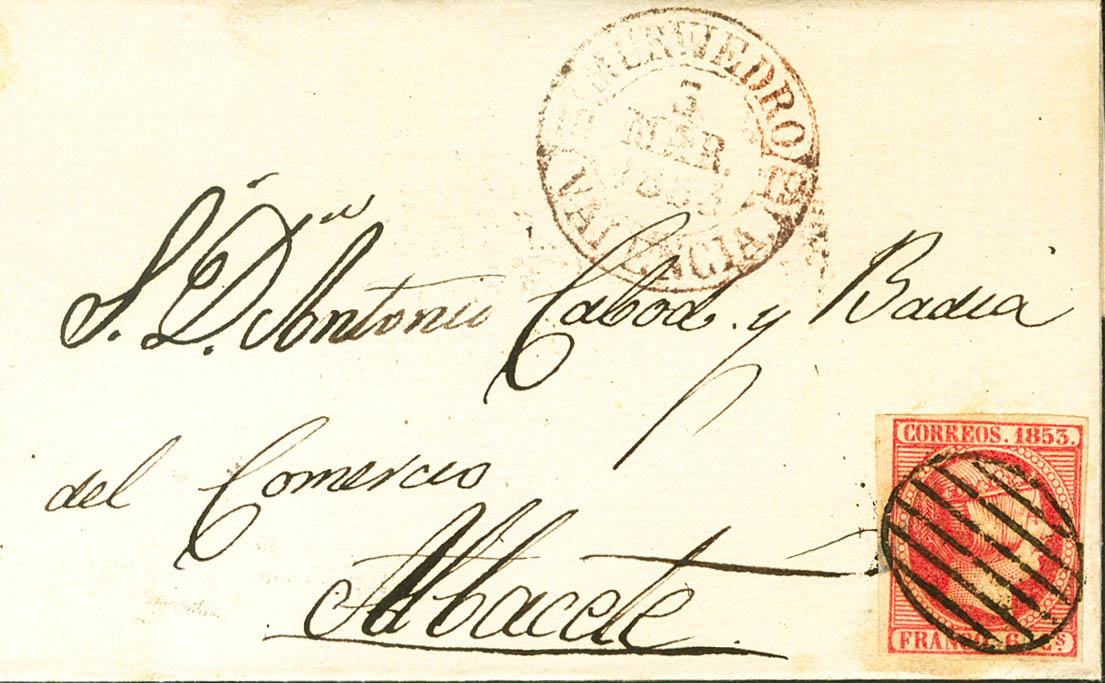 MURVIEDRO
5
MAR.
1853
VALENCIA.
S. D.ⁿ Antonio Cabod y Badia
del Comercio
Albacete.
CORREOS. 1853.
FRANCO. 6 Cˢ